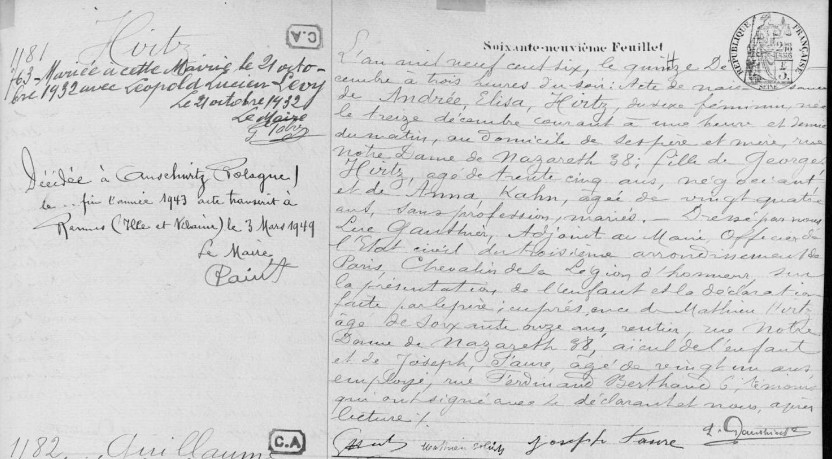 1181
Hirtz
C.A
1763 - Mariée à cette Mairie le 21 octo-
bre 1932 avec Léopold Lucien Lévy
Le 21 octobre 1932
Le Maire
Décédée à Auschwitz Pologne
le ... fin l'année 1943 acte transcrit à
Rennes (Ille et Vilaine) le 3 Mars 1949
Le Maire
Soixante-neuvième Feuillet
RÉPUBLIQUE FRANÇAISE
SEINE
L'an mil neuf cent six, le quinze Dé-
cembre à trois heures du soir: Acte de naissance
de Andrée, Elisa, Hirtz, du sexe féminin née
le treize décembre courant à une heure et demie
du matin, au domicile de ses père et mère, rue
Notre Dame de Nazareth 38; fille de Georges
Hirtz, âgé de trente cinq ans, négociant
et de Anna, Kahn, âgée de vingt quatre
ans, sans profession, mariés. - Dressé par nous
Luc Gauthier, Adjoint au Maire, Officier de
l'Etat civil du troisième arrondissement de
Paris, Chevalier de la Légion d'honneur, sur
la présentation de l'enfant et la déclaration
faite par le père; en présence de Mathieu Hirtz
âgé de soixante onze ans, rentier, rue Notre
Dame de Nazareth 38, aïeul de l'enfant
et de Joseph, Faure, âgé de vingt un ans,
employé, rue Ferdinand Berthoud 6, témoins
qui ont signé avec le déclarant et nous, après
lecture.
Joseph Faure
L. Gauthier
1182
Guillaume
C.A